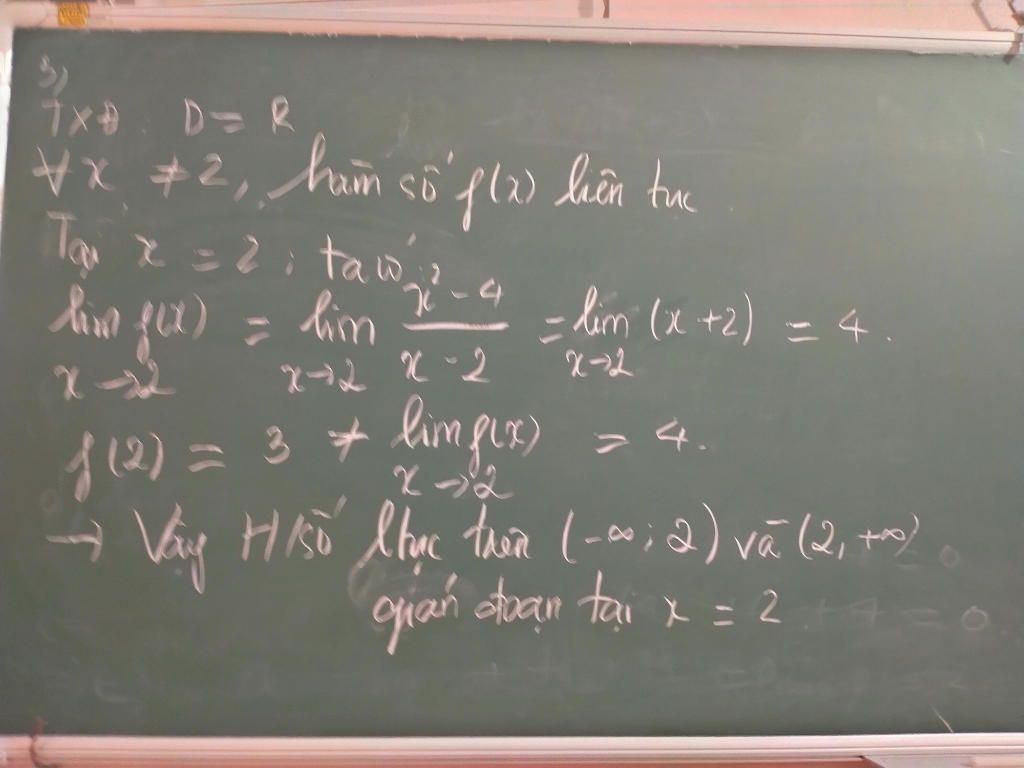 3,
TXĐ: D = R
∀x ≠ 2, hàm số f(x) liên tục
Tại x = 2; ta có
lim f(x) = lim x² - 4 / x - 2 = lim (x + 2) = 4.
x→2 x→2 x→2
f(2) = 3 ≠ lim f(x) = 4.
x→2
→ Vậy H/số ltục trên (-∞; 2) và (2, +∞)
gián đoạn tại x = 2